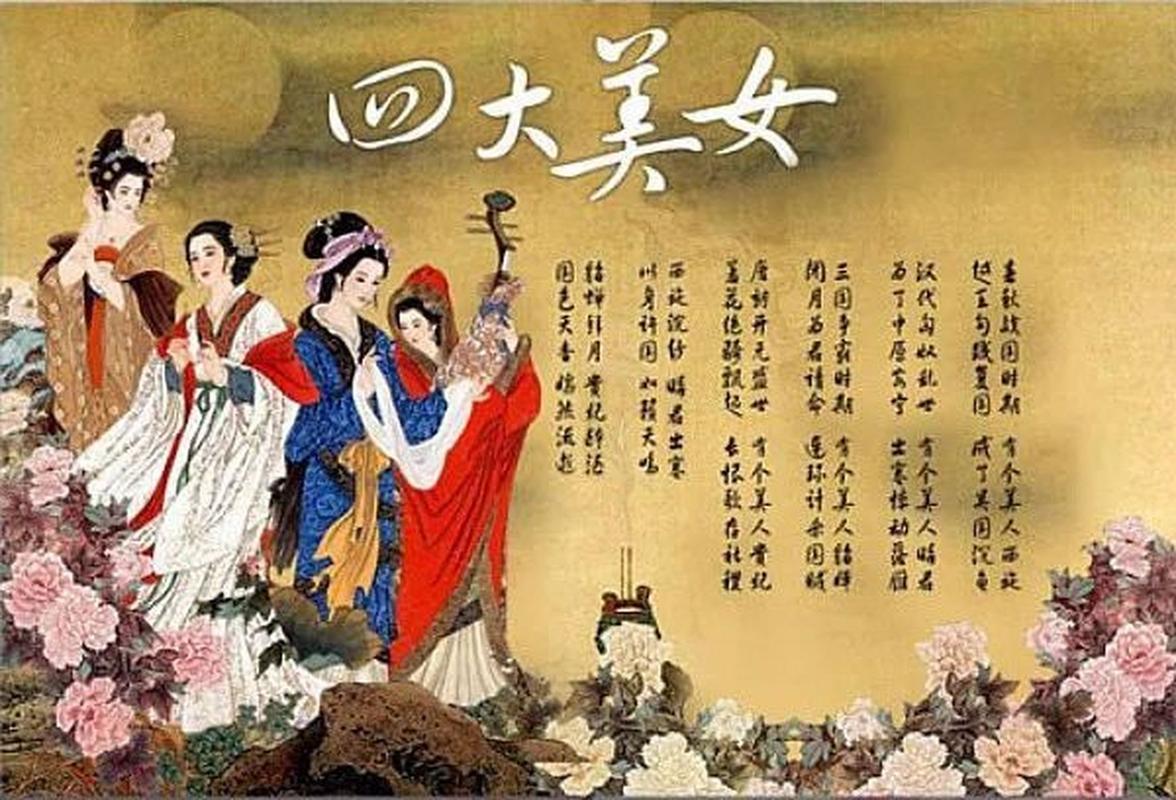 四大美女
春秋战国时期 有个美人西施
越王勾践复国 成了吴国沉鱼
汉代匈奴乱世 有个美人昭君
为了中原安宁 出塞惊动落雁
三国争霸时期 有个美人貂蝉
闭月为君请命 连环计杀国贼
唐朝开元盛世 有个美人贵妃
羞花绝骑飘起 长恨歌存社稷
西施沉纱 昭君出塞
以身许国 如籁天鸣
貂蝉拜月 贵妃醉酒
国色天香 嫣然流彩